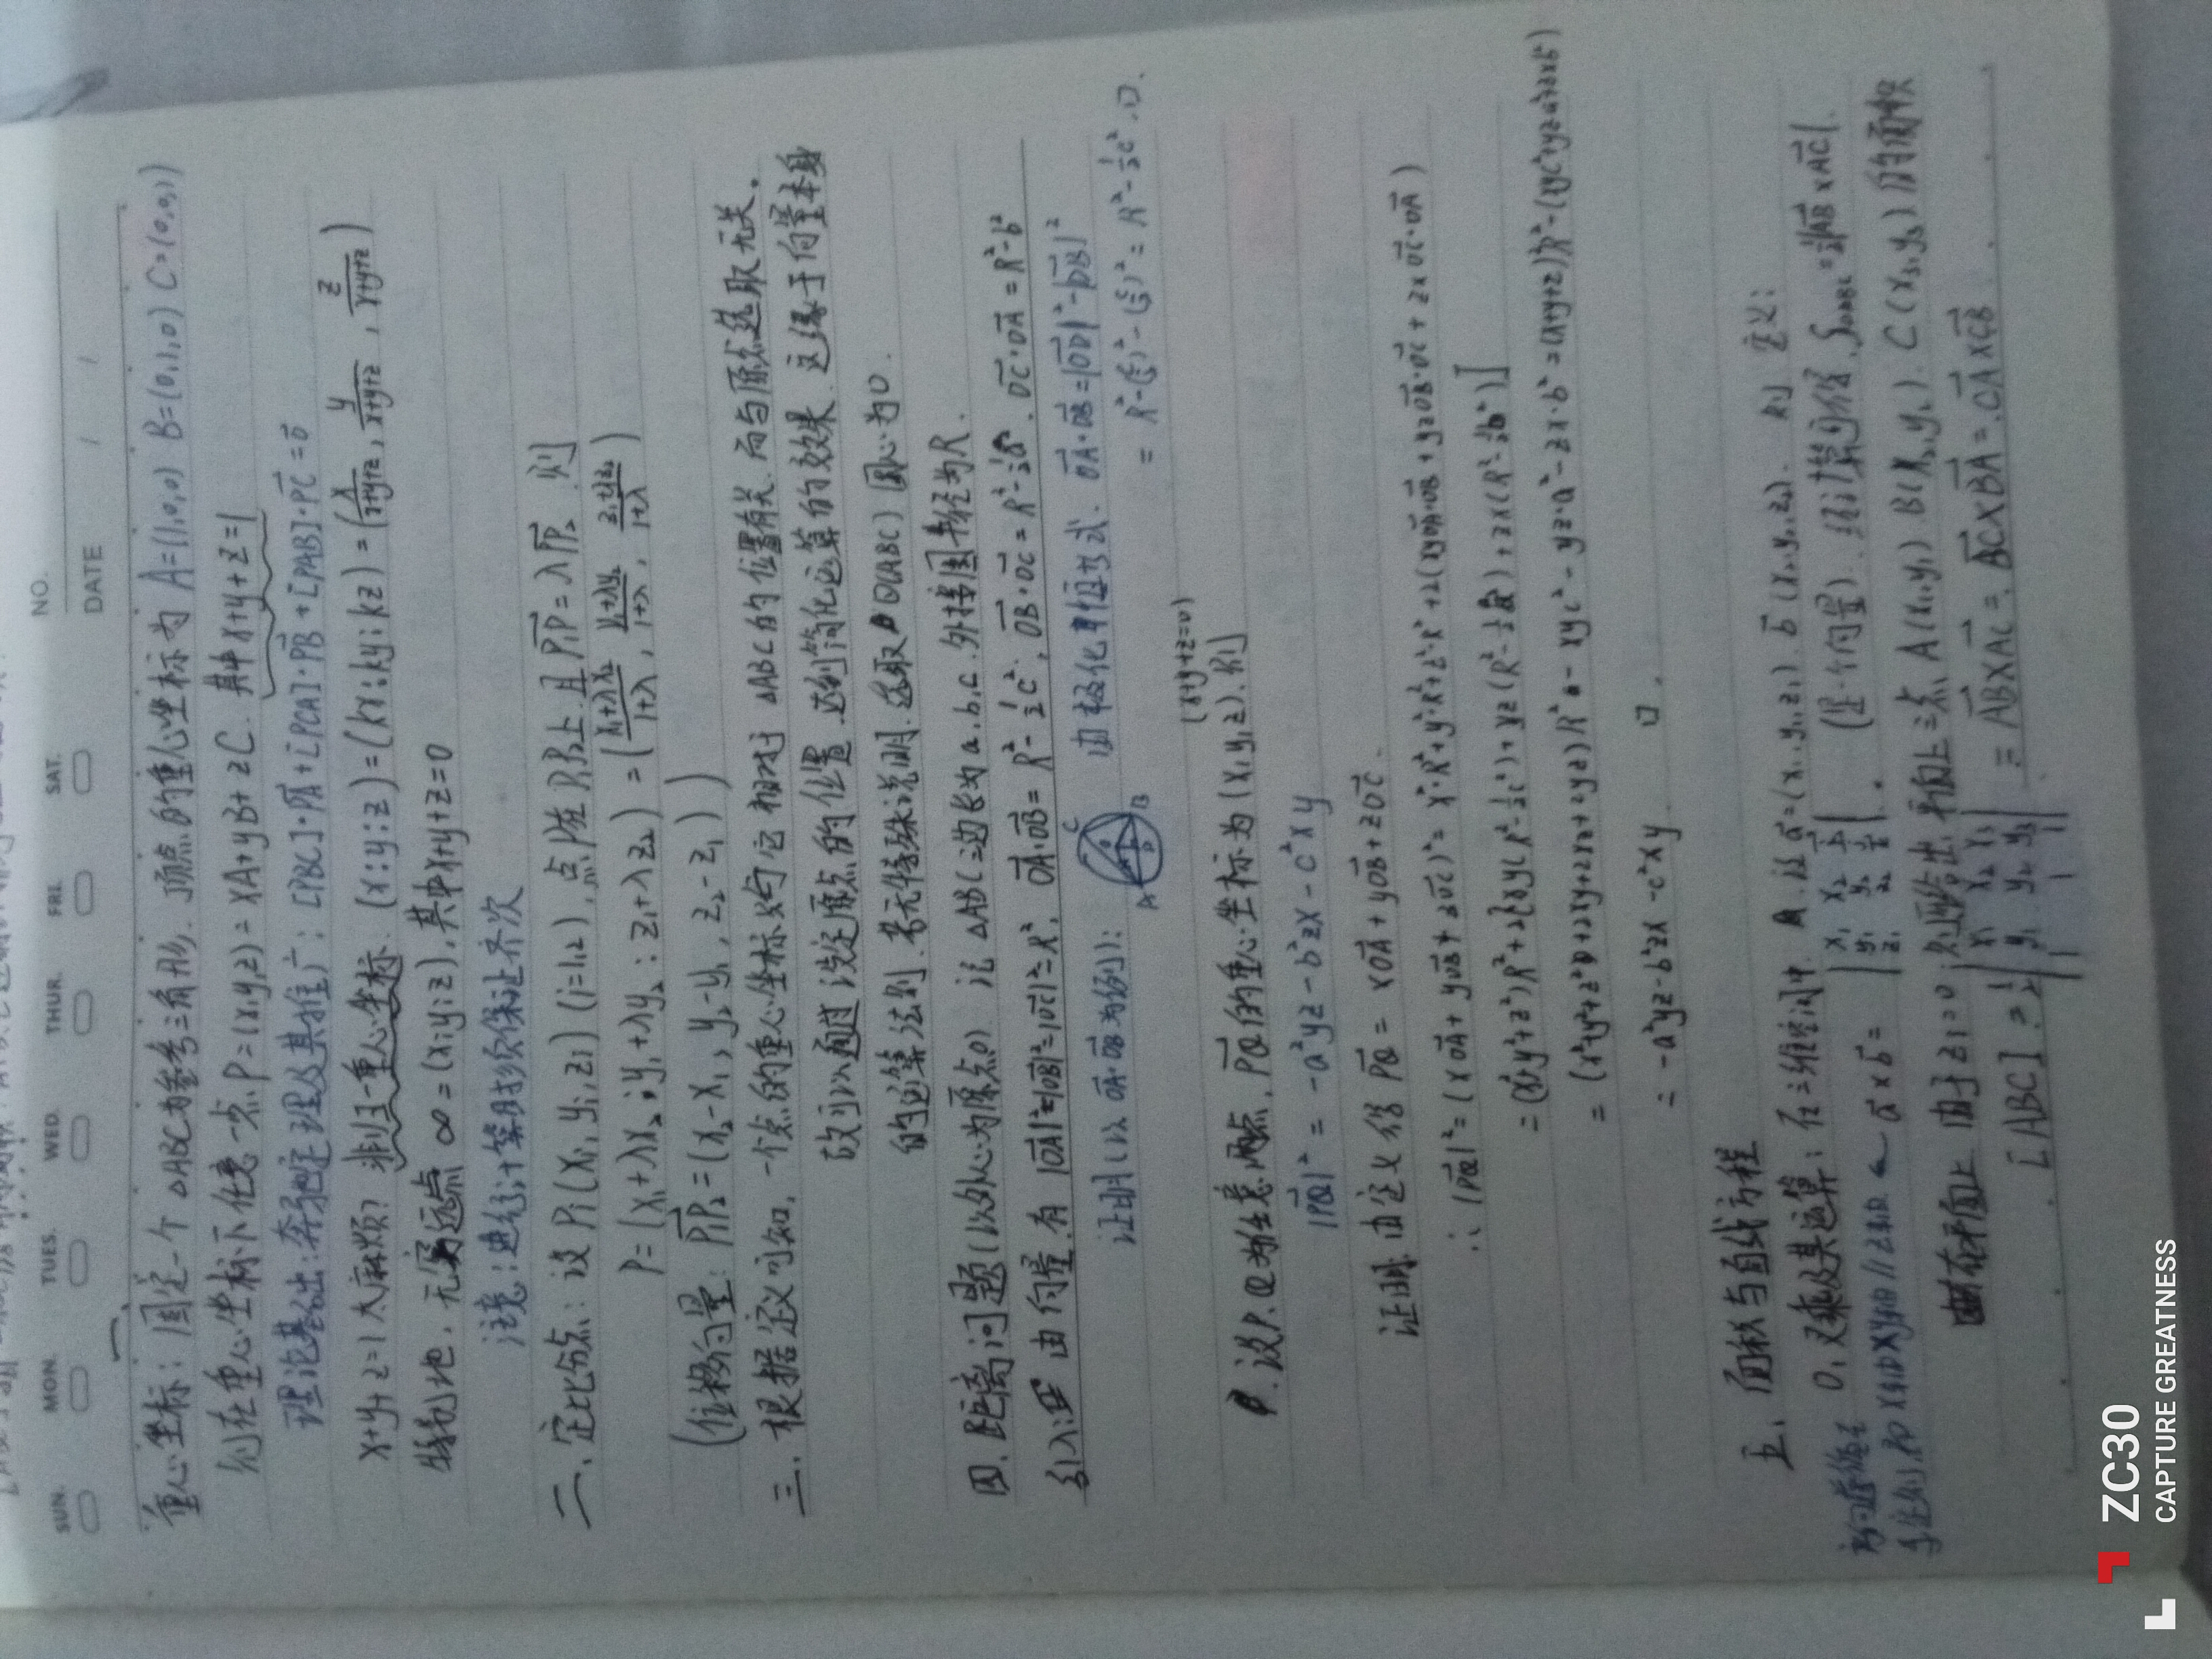 NO.
DATE / /
SUN. MON. TUES. WED. THUR. FRI. SAT.
一、
重心坐标：固定一个△ABC为参考三角形．顶点的重心坐标为 A=(1,0,0) B=(0,1,0) C=(0,0,1)
则在重心坐标下任意一点P=(x,y,z)=xA+yB+zC．其中x+y+z=1
理论基础：奔驰定理及其推广：[PBC]·PA+[PCA]·PB+[PAB]·PC=0
x+y+z=1太麻烦？非归一重心坐标．(x:y:z)=(kx:ky:kz)=(x/(x+y+z), y/(x+y+z), z/(x+y+z))
特别地，无穷远点 ∞=(x:y:z)，其中x+y+z=0
注意：进行计算时须保证齐次
二．定比分点：设Pi(xi,yi,zi)(i=1,2)，点P在P1P2上且P1P=λPP2．则
P=(x1+λx2:y1+λy2:z1+λz2)=((x1+λx2)/(1+λ), (y1+λy2)/(1+λ), (z1+λz2)/(1+λ))
(位移向量：P1P2=(x2-x1, y2-y1, z2-z1))
三．根据定义可知，一个点的重心坐标只与它相对于△ABC的位置有关．而与原点选取无关．
故可以通过设定原点的位置．达到简化运算的效果．这缘于向量本身
的运算法则．若无特殊说明．选取O(ABC)圆心为O．
四．距离问题(以外心为原点O) 记△ABC三边长为a,b,c．外接圆半径为R．
引入：由向量有 |OA|²=|OB|²=|OC|²=R²，OA·OB=R²-½c²，OB·OC=R²-½a²．OC·OA=R²-b²
证明(以OA·OB为例)：
A B C
由极化恒等式．OA·OB=|OD|²-|DB|²
=R²-(c/2)²-(c/2)²=R²-½c²．□．
设P,Q为任意两点，PQ的重心坐标为(x,y,z)．则
(x+y+z=0)
|PQ|²=-a²yz-b²zx-c²xy
证明：由定义得 PQ=xOA+yOB+zOC．
∴|PQ|²=(xOA+yOB+zOC)²=x²·R²+y²·R²+z²·R²+2(xyOA·OB+yzOB·OC+zxOC·OA)
=(x²+y²+z²)R²+2[xy(R²-½c²)+yz(R²-½a²)+zx(R²-½b²)]
=(x²+y²+z²+2xy+2xz+2yz)R²-xyc²-yz·a²-zx·b²=(x+y+z)²R²-(xyc²+yza²+zxb²)
=-a²yz-b²zx-c²xy □．
五．面积与直线方程
0．叉乘及其运算：在三维空间中．设a=(x1,y1,z1)．b(x2,y2,z2)．则 定义：
a×b= | x1 x2 | | y1 y2 | | z1 z2 | (是一个向量)．经计算可得．S△ABC=½|AB×AC|．
由于z1=0；则运算给出．平面上三点A(x1,y1) B(x2,y2)．C(x3,y3)的面积
[ABC]=½ | x1 x2 x3 | | y1 y2 y3 | | 1 1 1 | =AB×AC=BC×BA=CA×CB
ZC30
CAPTURE GREATNESS